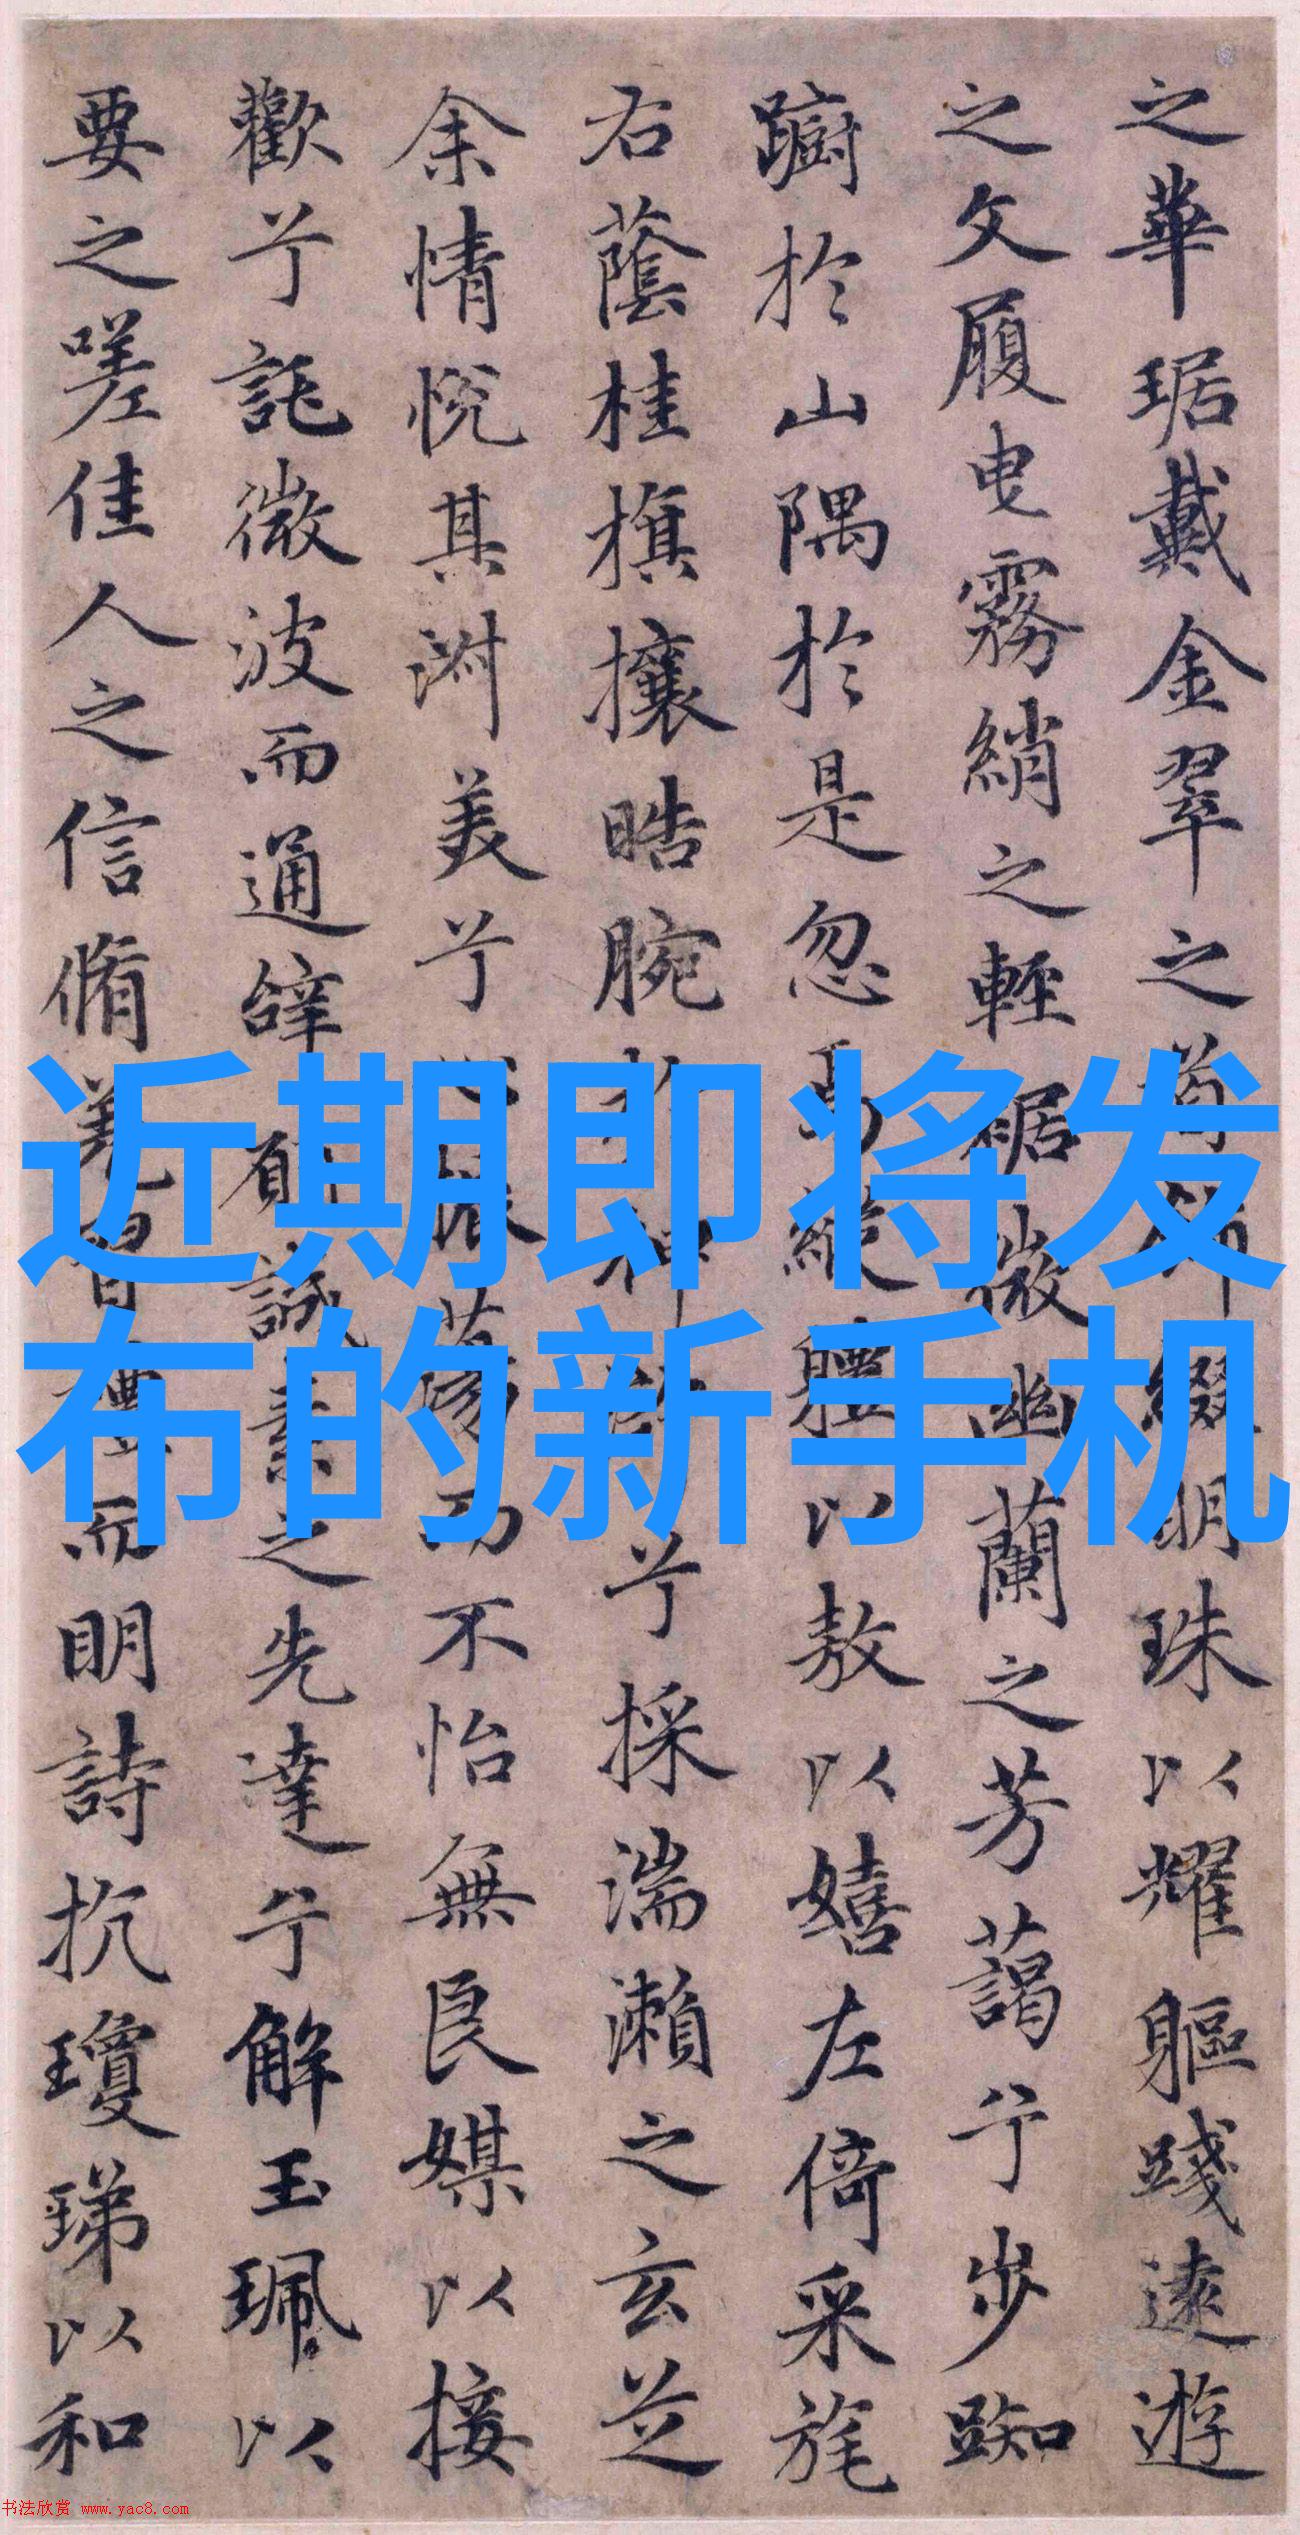 近期即将发
布的新手机
之華琚戴金翠之首飾綴明珠以耀軀踐遠遊
之文履曳霧綃之輕裾微幽蘭之芳藹兮步踟
躕於山隅於是忽焉縱體以敖以嬉左倚采旄
右蔭桂旗攘晧腕於神滸兮採湍瀨之玄芝
余情悅其淑美兮心振蕩而不怡無良媒以接
歡兮託微波而通辭願誠素之先達兮解玉珮以
要之嗟佳人之信脩羌習禮而明詩抗瓊珶以和
书法欣赏 www.yac8.com